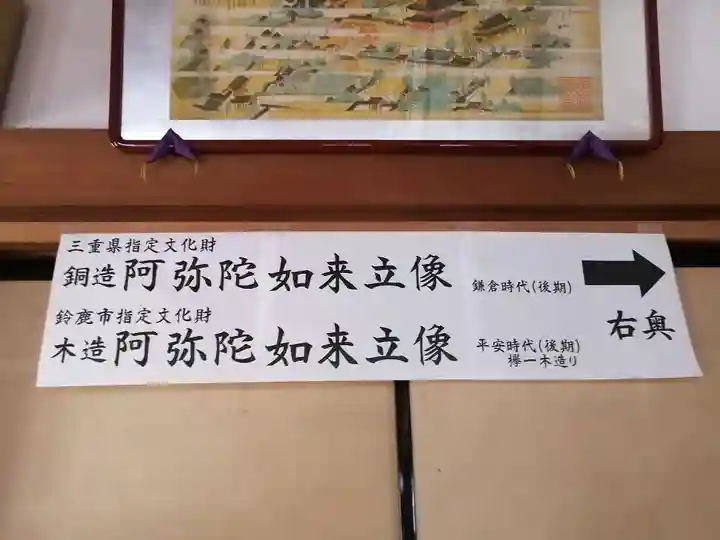 三重県指定文化財
銅造 阿弥陀如来立像 鎌倉時代(後期)
鈴鹿市指定文化財
木造 阿弥陀如来立像 平安時代(後期)
欅一木造り
右奥